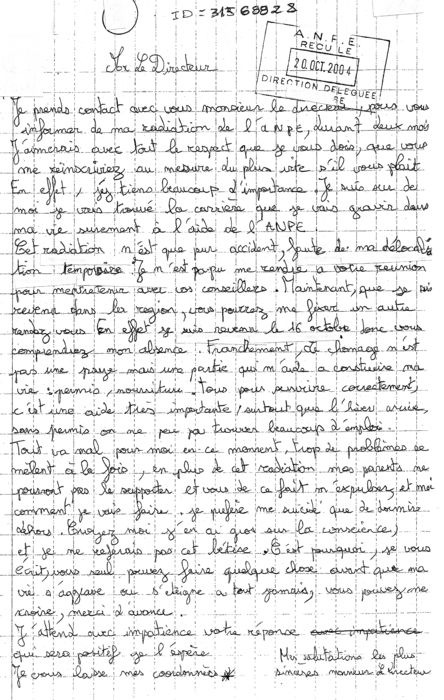 ID = 3156892 8
A.N.P.E
RECU LE
20 OCT. 2004
DIRECTION DELEGUEE
RE
Le Directeur
Je prends contact avec vous monsieur le directeur, pour vous
informer de ma radiation de l'ANPE, durant deux mois
J'aimerais avec tout le respect que je vous dois, que vous
me réinscriviez au mesure du plus vite s'il vous plait
En effet, j'ey tiens beaucoup d'importance. Je suis sur de
moi je vais trouvé la carrière que je vas gravir dans
ma vie surement à l'aide de l'ANPE
Cet radiation n'est que pur accident, faute de ma délocalisa
tion temporaire. Je n'est pas pu me rendre a votre reunion
pour m'entretenir avec vos conseillers. Maintenant, que je suis
revenu dans la region, vous pourrez me fixer un autre
rendez vous. En effet je suis revenu le 16 octobre donc vous
comprendrez mon absence. Franchement, le chomage n'est
pas une paye mais une partie qui m'aide a construire ma
vie: permis, nourriture. Tous pour survivre correctement,
c'est une aide très importante, surtout que l'hiver arrive,
sans permis on ne peu pas trouver beaucoup d'emploi.
Tout va mal pour moi en ce moment, trop de problèmes se
mêlent à la fois, en plus de cet radiation mes parents ne
pourront pas le supporter et vous de ce fait m'expulser, et moi
comment je vais faire. je prefère me suicidé que de dormire
dehors. Croyez moi j'en ai gros sur la conscience,
et je ne referais pas cet bétise. C'est pourquoi, je vous
ecrit, vous seul pouvez faire quelque chose avant que ma
vie s'aggrave ou s'éteigne a tout jamais, vous pouvez me
croire, merci d'avance.
J'attend avec impatience votre réponse avec impatience
qui sera positif je l'espère
Je vous laisse mes coordonnées *
Mes salutations les plus
sincères monsieur le directeur